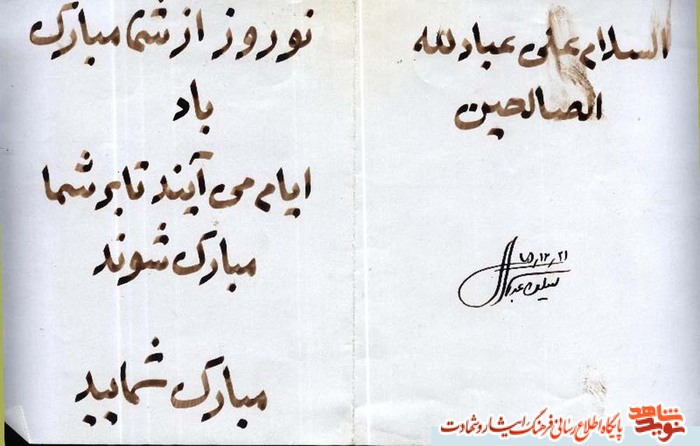 السلام علی عبادلله
الصالحین
۸۵,۱۲,۲۱
نوروز از شما مبارک
باد
ایام می آیند تا بر شما
مبارک شوند
مبارک شمایید
نوید شاهد
پایگاه اطلاع رسانی فرهنگ ایثار و شهادت